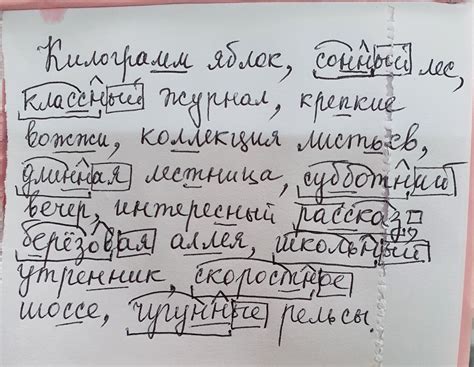 Килограмм яблок, сонный лес,
классный журнал, крепкие
вожжи, коллекция листьев,
длинная лестница, субботний
вечер, интересный рассказ,
берёзовая аллея, школьный
утренник, скоростное
шоссе, чугунные рельсы.